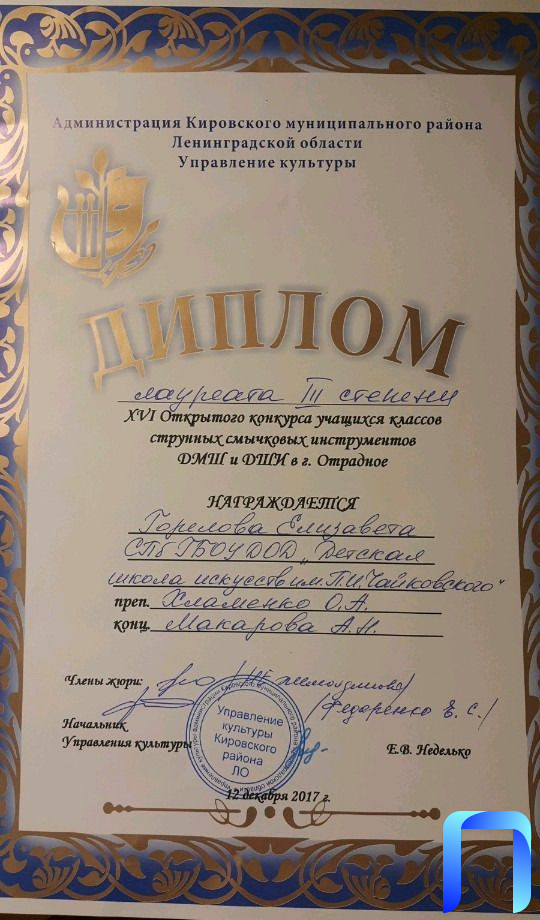 Администрация Кировского муниципального района
Ленинградской области
Управление культуры
ДИПЛОМ
лауреата III степени
XVI Открытого конкурса учащихся классов
струнных смычковых инструментов
ДМШ и ДШИ в г. Отрадное
НАГРАЖДАЕТСЯ
Горелова Елизавета
СПб ГБОУ ДОД „Детская
школа искусств им. П.И. Чайковского"
преп. Хламенко О.А.
конц. Макарова А.Н.
Члены жюри:
/Федоренко Е.С./
Начальник
Управления культуры
Е.В. Неделько
Управление
культуры
Кировского
района
ЛО
12 декабря 2017 г.